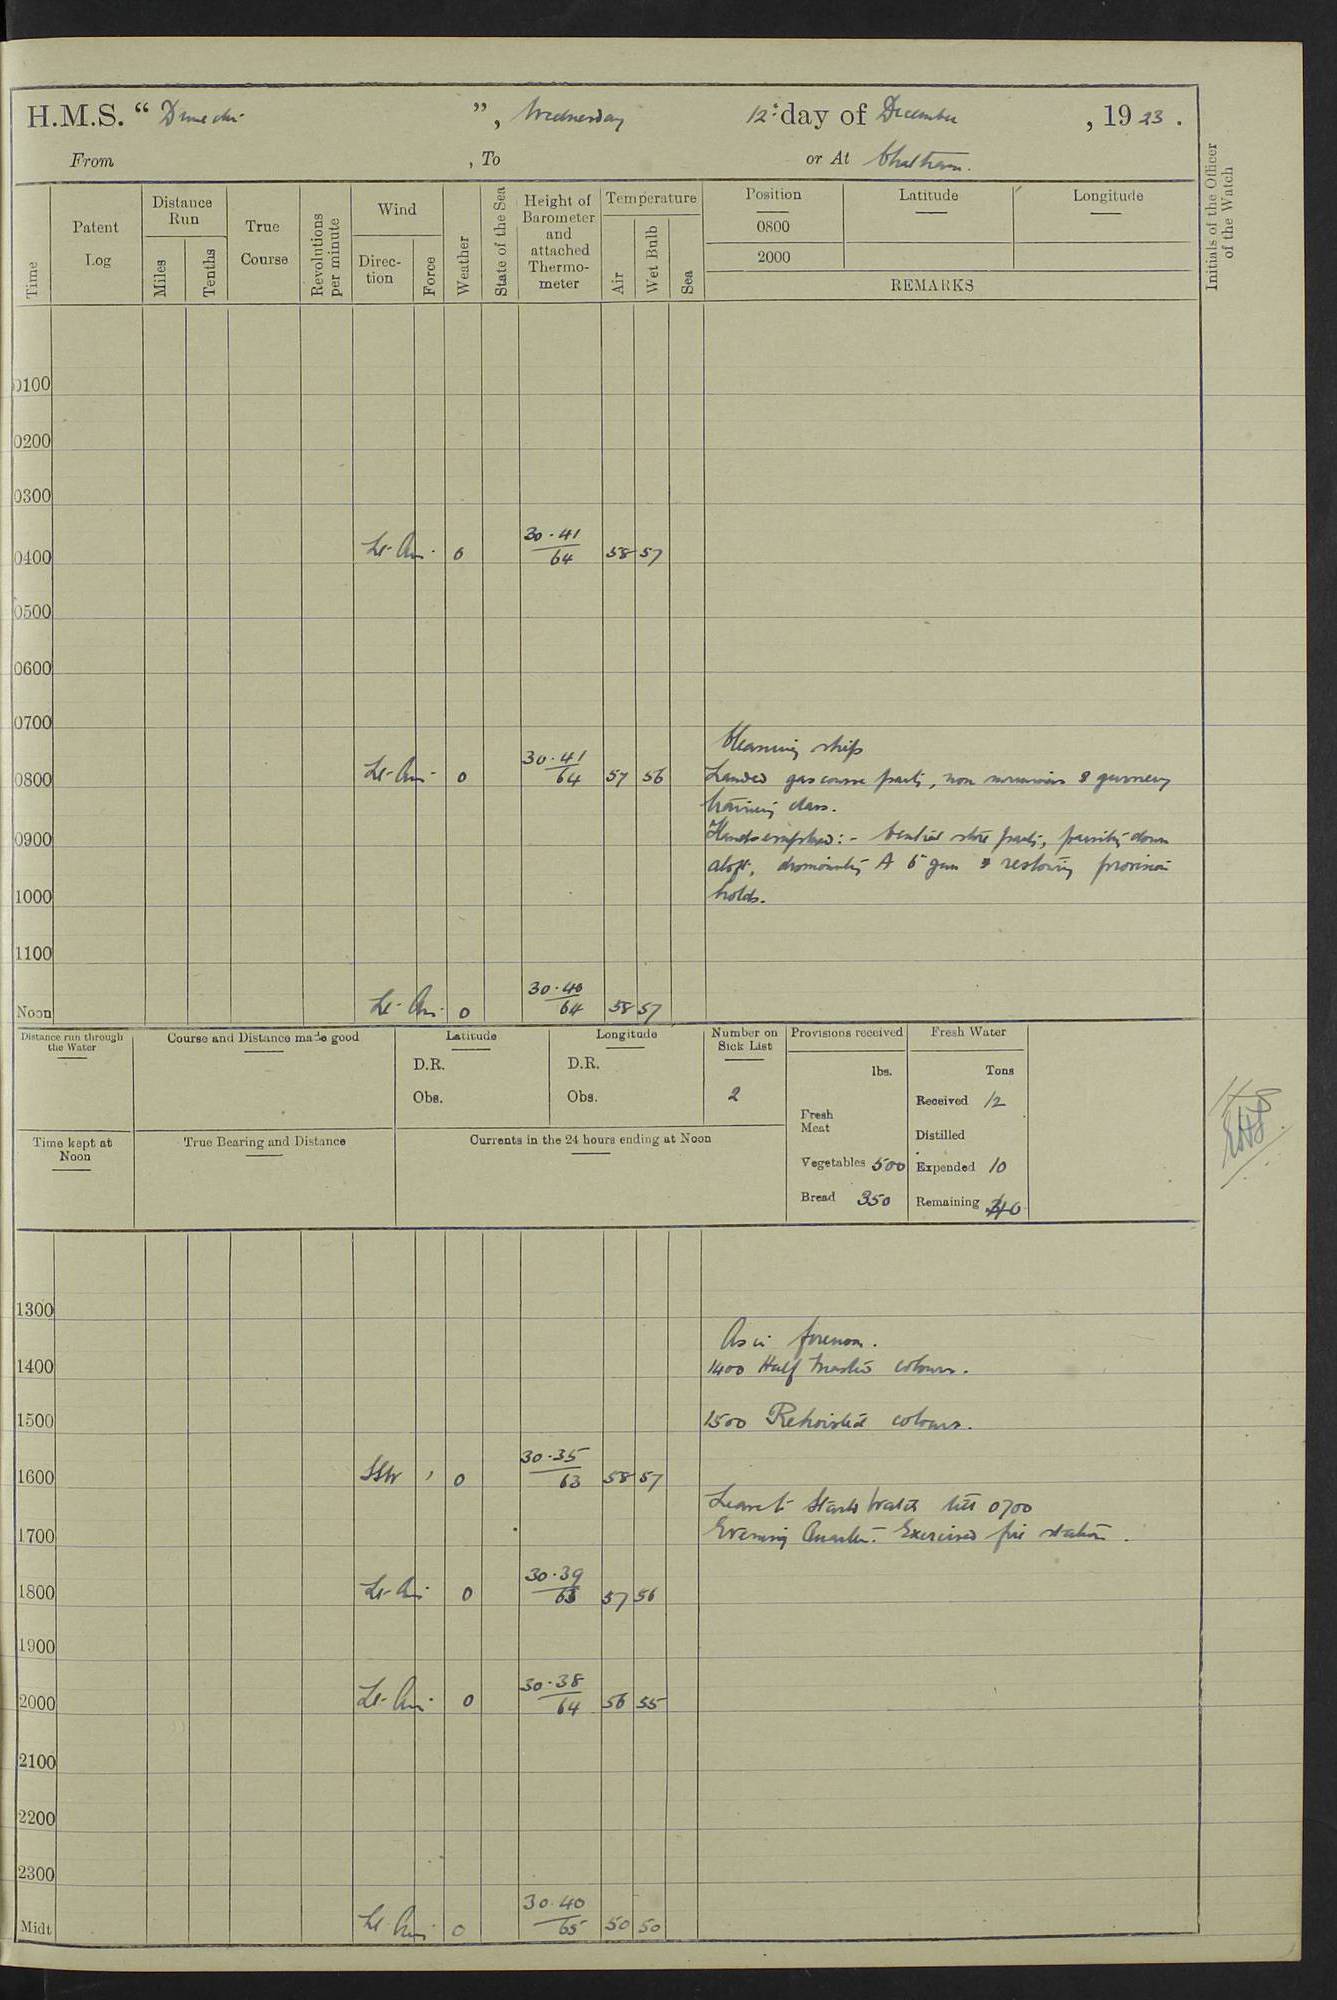 H.M.S. “ Dunedin ”, Wednesday 12th day of December, 1923.
From , To or At Chatham.
Time
Patent Log
Distance Run
Miles
Tenths
True Course
Revolutions per minute
Wind
Direction
Force
Weather
State of the Sea
Height of Barometer and attached Thermometer
Temperature
Air
Wet Bulb
Sea
Position
0800
2000
Latitude
Longitude
REMARKS
Initials of the Officer of the Watch
0100
0200
0300
0400 Lt. Airs. 0 30.41/64 58 57
0500
0600
0700
Cleaning ship
0800 Lt. Airs. 0 30.41/64 57 56 Landed gas course party, non swimmers & gunnery
training class.
0900 Hands employed:- Central store party, painting down
aloft, dismounting A 6" gun & restowing provision
1000 holds.
1100
Noon Lt. Airs. 0 30.40/64 58 57
Distance run through the Water
Course and Distance made good
Latitude
D.R.
Obs.
Longitude
D.R.
Obs.
Number on Sick List
2
Provisions received
lbs.
Fresh Meat
Vegetables 500
Bread 350
Fresh Water
Tons
Received 12
Distilled
Expended 10
Remaining
Time kept at Noon
True Bearing and Distance
Currents in the 24 hours ending at Noon
1300
As in forenoon.
1400 1400 Half masted colours.
1500 1500 Rehoisted colours.
1600 SSW 1 0 30.35/63 58 57
Leave to Starbd Watch till 0700
1700 Evening Quarters. Exercised fire stations.
1800 Lt. Airs 0 30.39/63 57 56
1900
2000 Lt. Airs. 0 30.38/64 56 55
2100
2200
2300
Midt Lt. Airs. 0 30.40/65 50 50